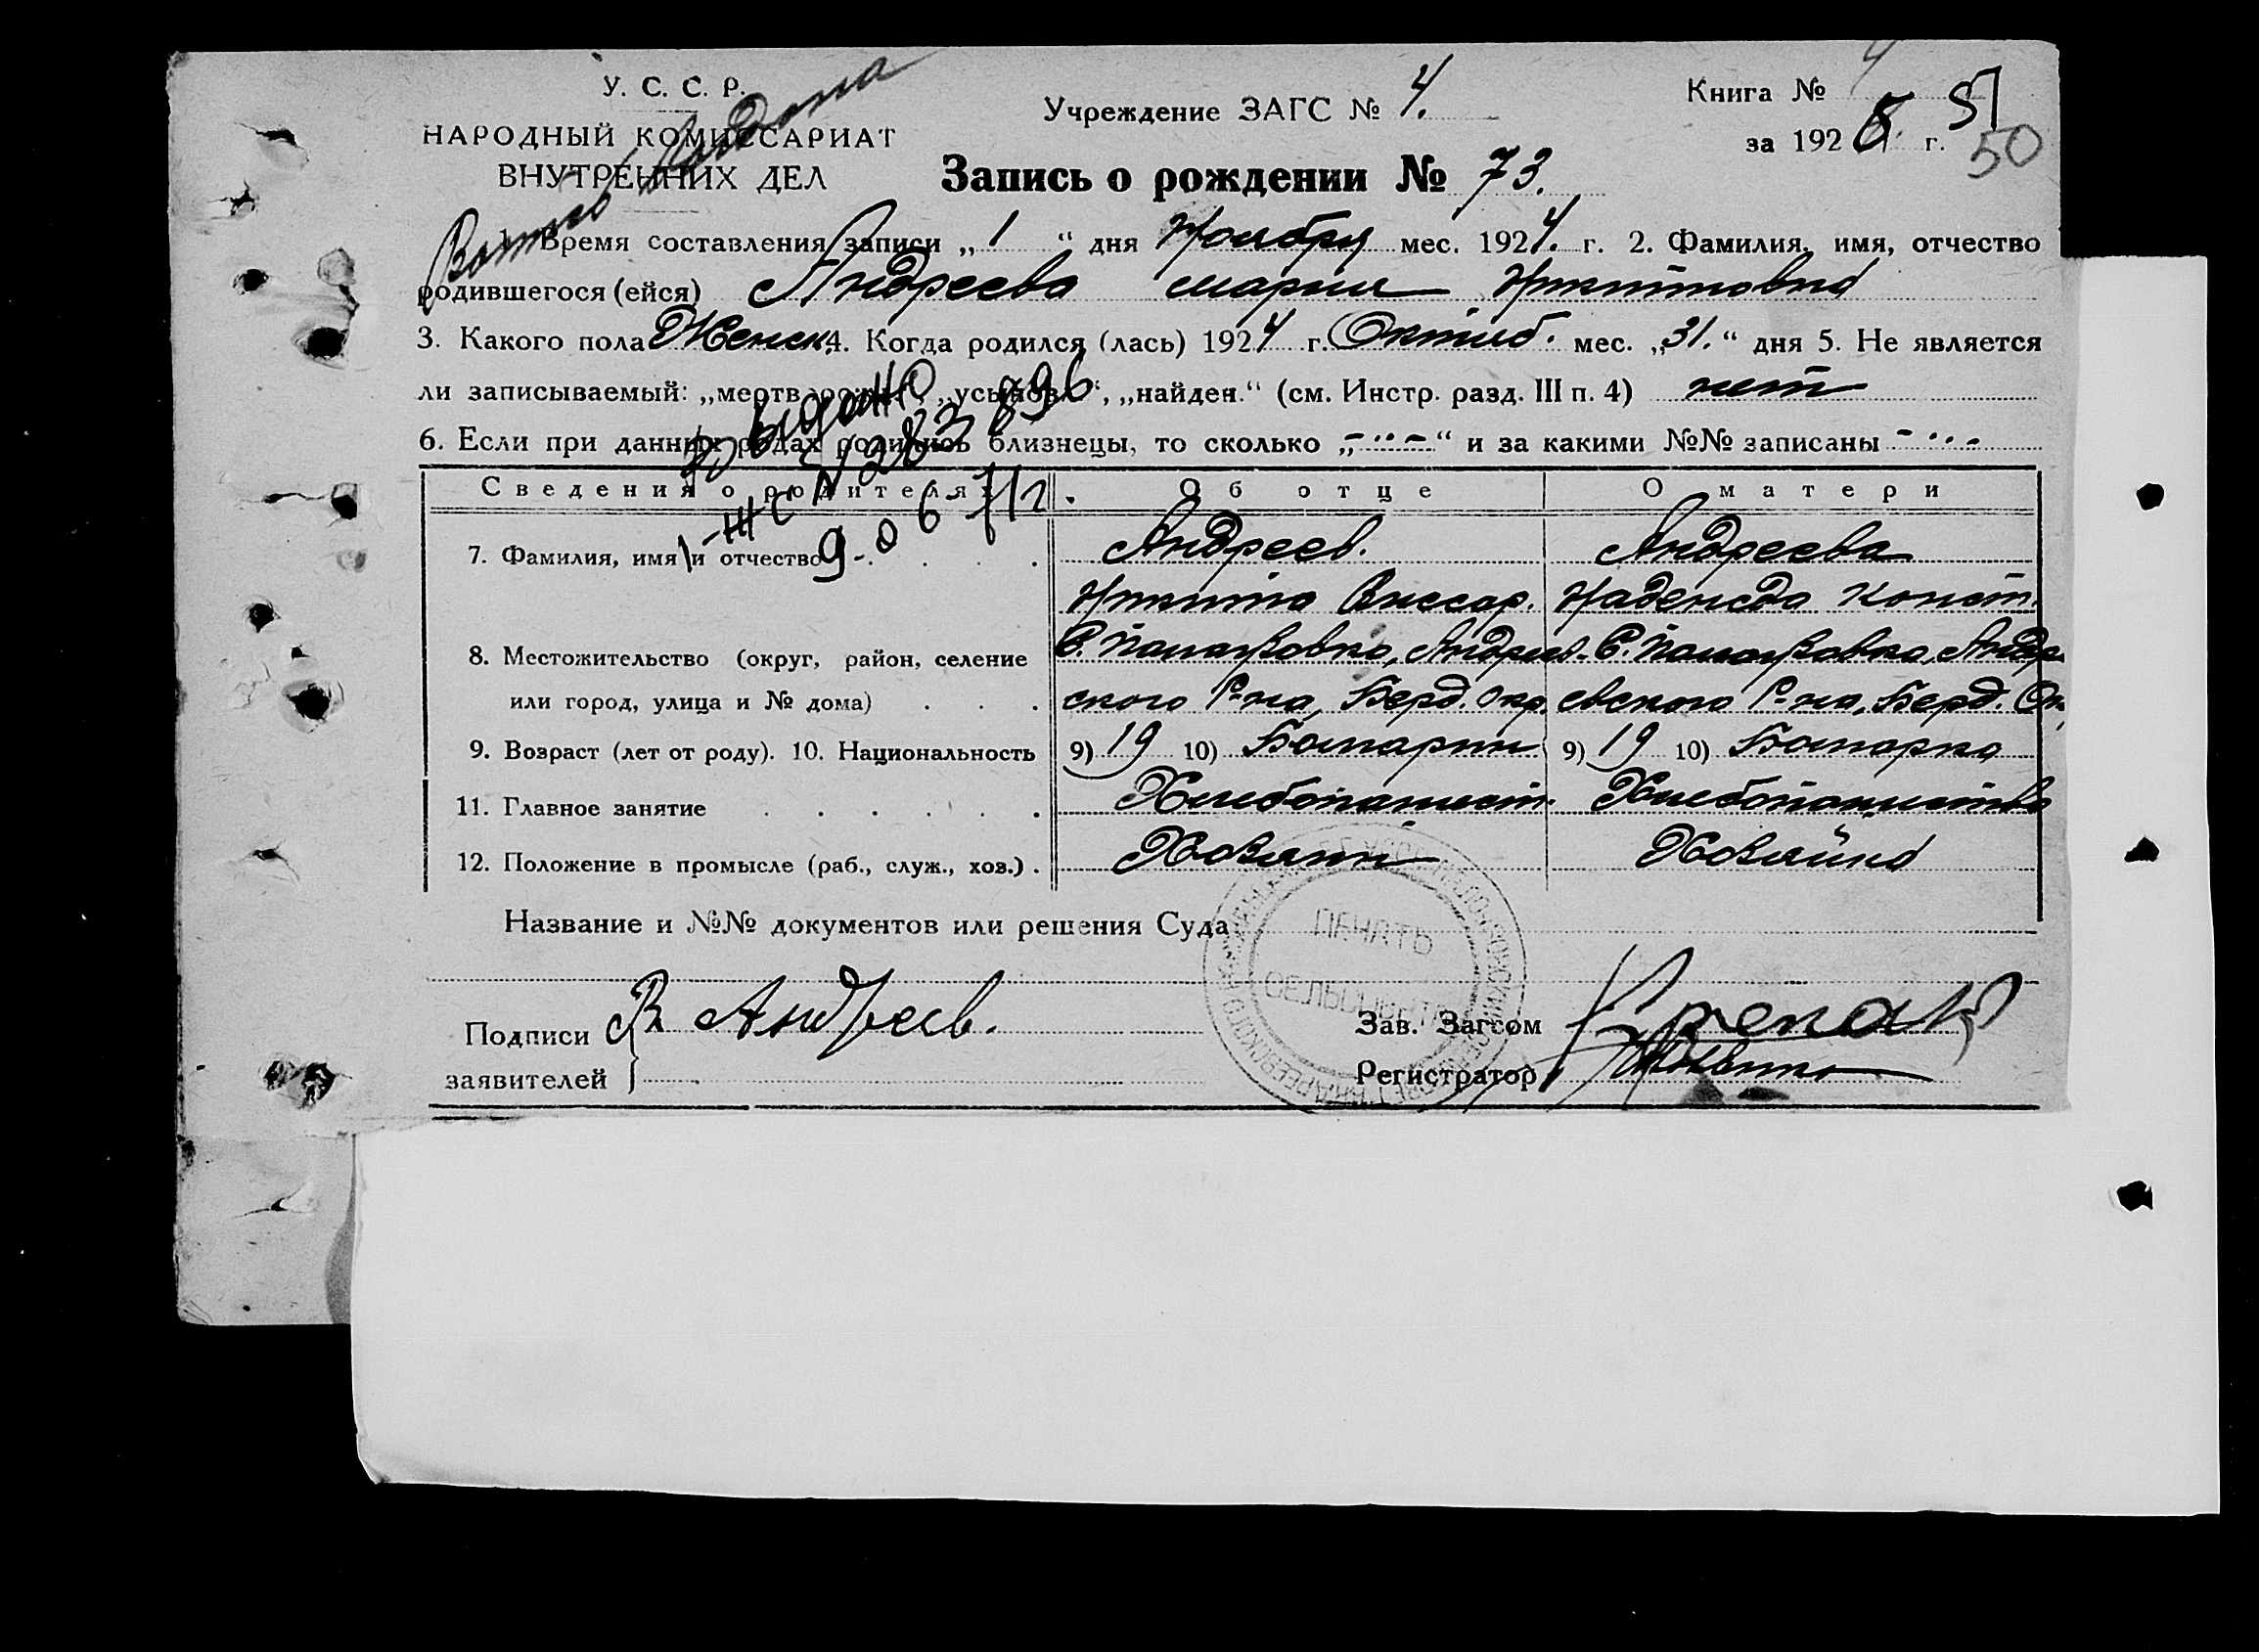 У. С. С. Р.
НАРОДНЫЙ КОМИССАРИАТ
ВНУТРЕННИХ ДЕЛ
Учреждение ЗАГС № 4.
Книга № 4
51
за 192 г.
50
Запись о рождении № 73.
1. Время составления записи „ 1 “ дня Ноября мес. 1924. г. 2. Фамилия, имя, отчество
родившегося (ейся) Андреева Мария Никитовна
3. Какого пола Женск. 4. Когда родился (лась) 1924 г. Октяб. мес. „31.“ дня 5. Не является
ли записываемый: „мертворожд.“, „усыновл.“, „найден.“ (см. Инстр. разд. III п. 4) нет
6. Если при данных родах родились близнецы, то сколько „-..-“ и за какими №№ записаны -..-
выдано
1-ЖС № 283896
9-06-71г.
Сведения о родителях Об отце О матери
7. Фамилия, имя и отчество Андреев. Андреева
Никита Виссар. Надежда Конст.
8. Местожительство (округ, район, селение
или город, улица и № дома)
ского Р-на, Берд. Окр. евского Р-на, Берд. Ок.
9. Возраст (лет от роду). 10. Национальность 9) 19 10) Болгарин 9) 19 10) Болгарка
11. Главное занятие Хлебопашест. Хлебопашество
12. Положение в промысле (раб., служ., хоз.) Хозяин Хозяйка
Название и №№ документов или решения Суда
ПЕЧАТЬ
СЕЛЬЩИНА
Подписи Андреев.
заявителей
Зав. Загсом
Регистратор